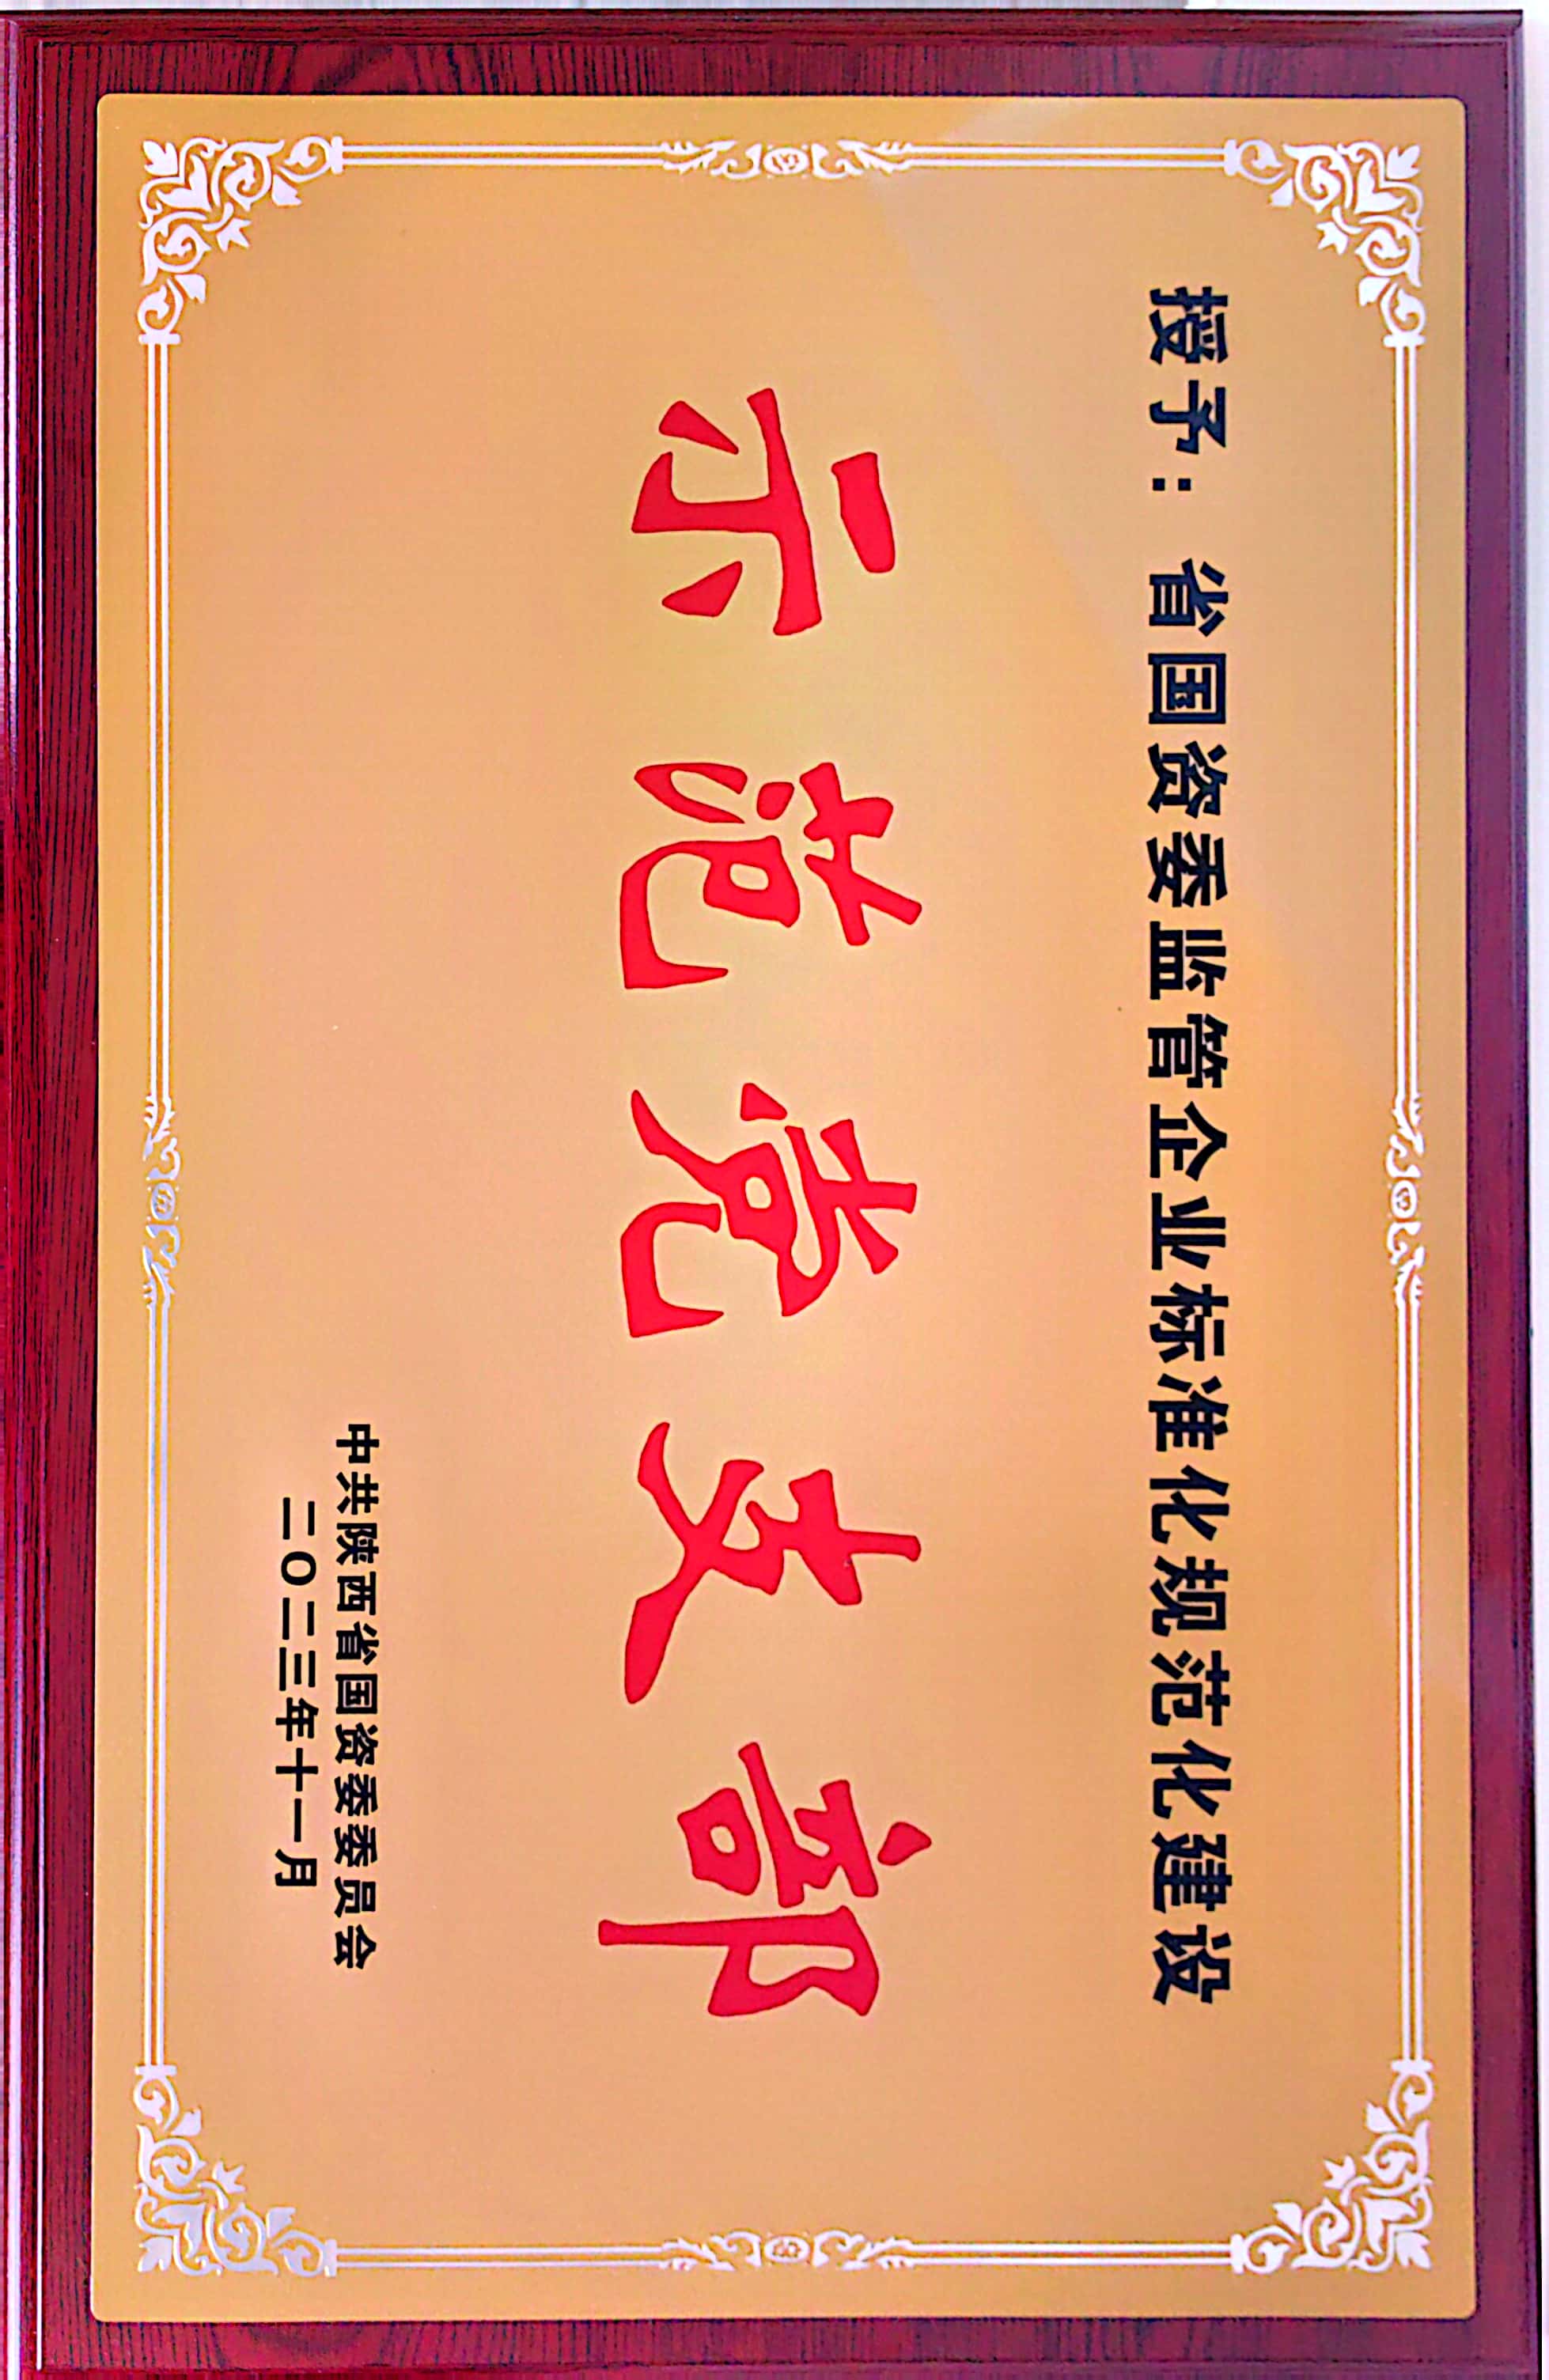 授予：省国资委监管企业标准化规范化建设
示范党支部
中共陕西省国资委委员会
二〇二三年十一月